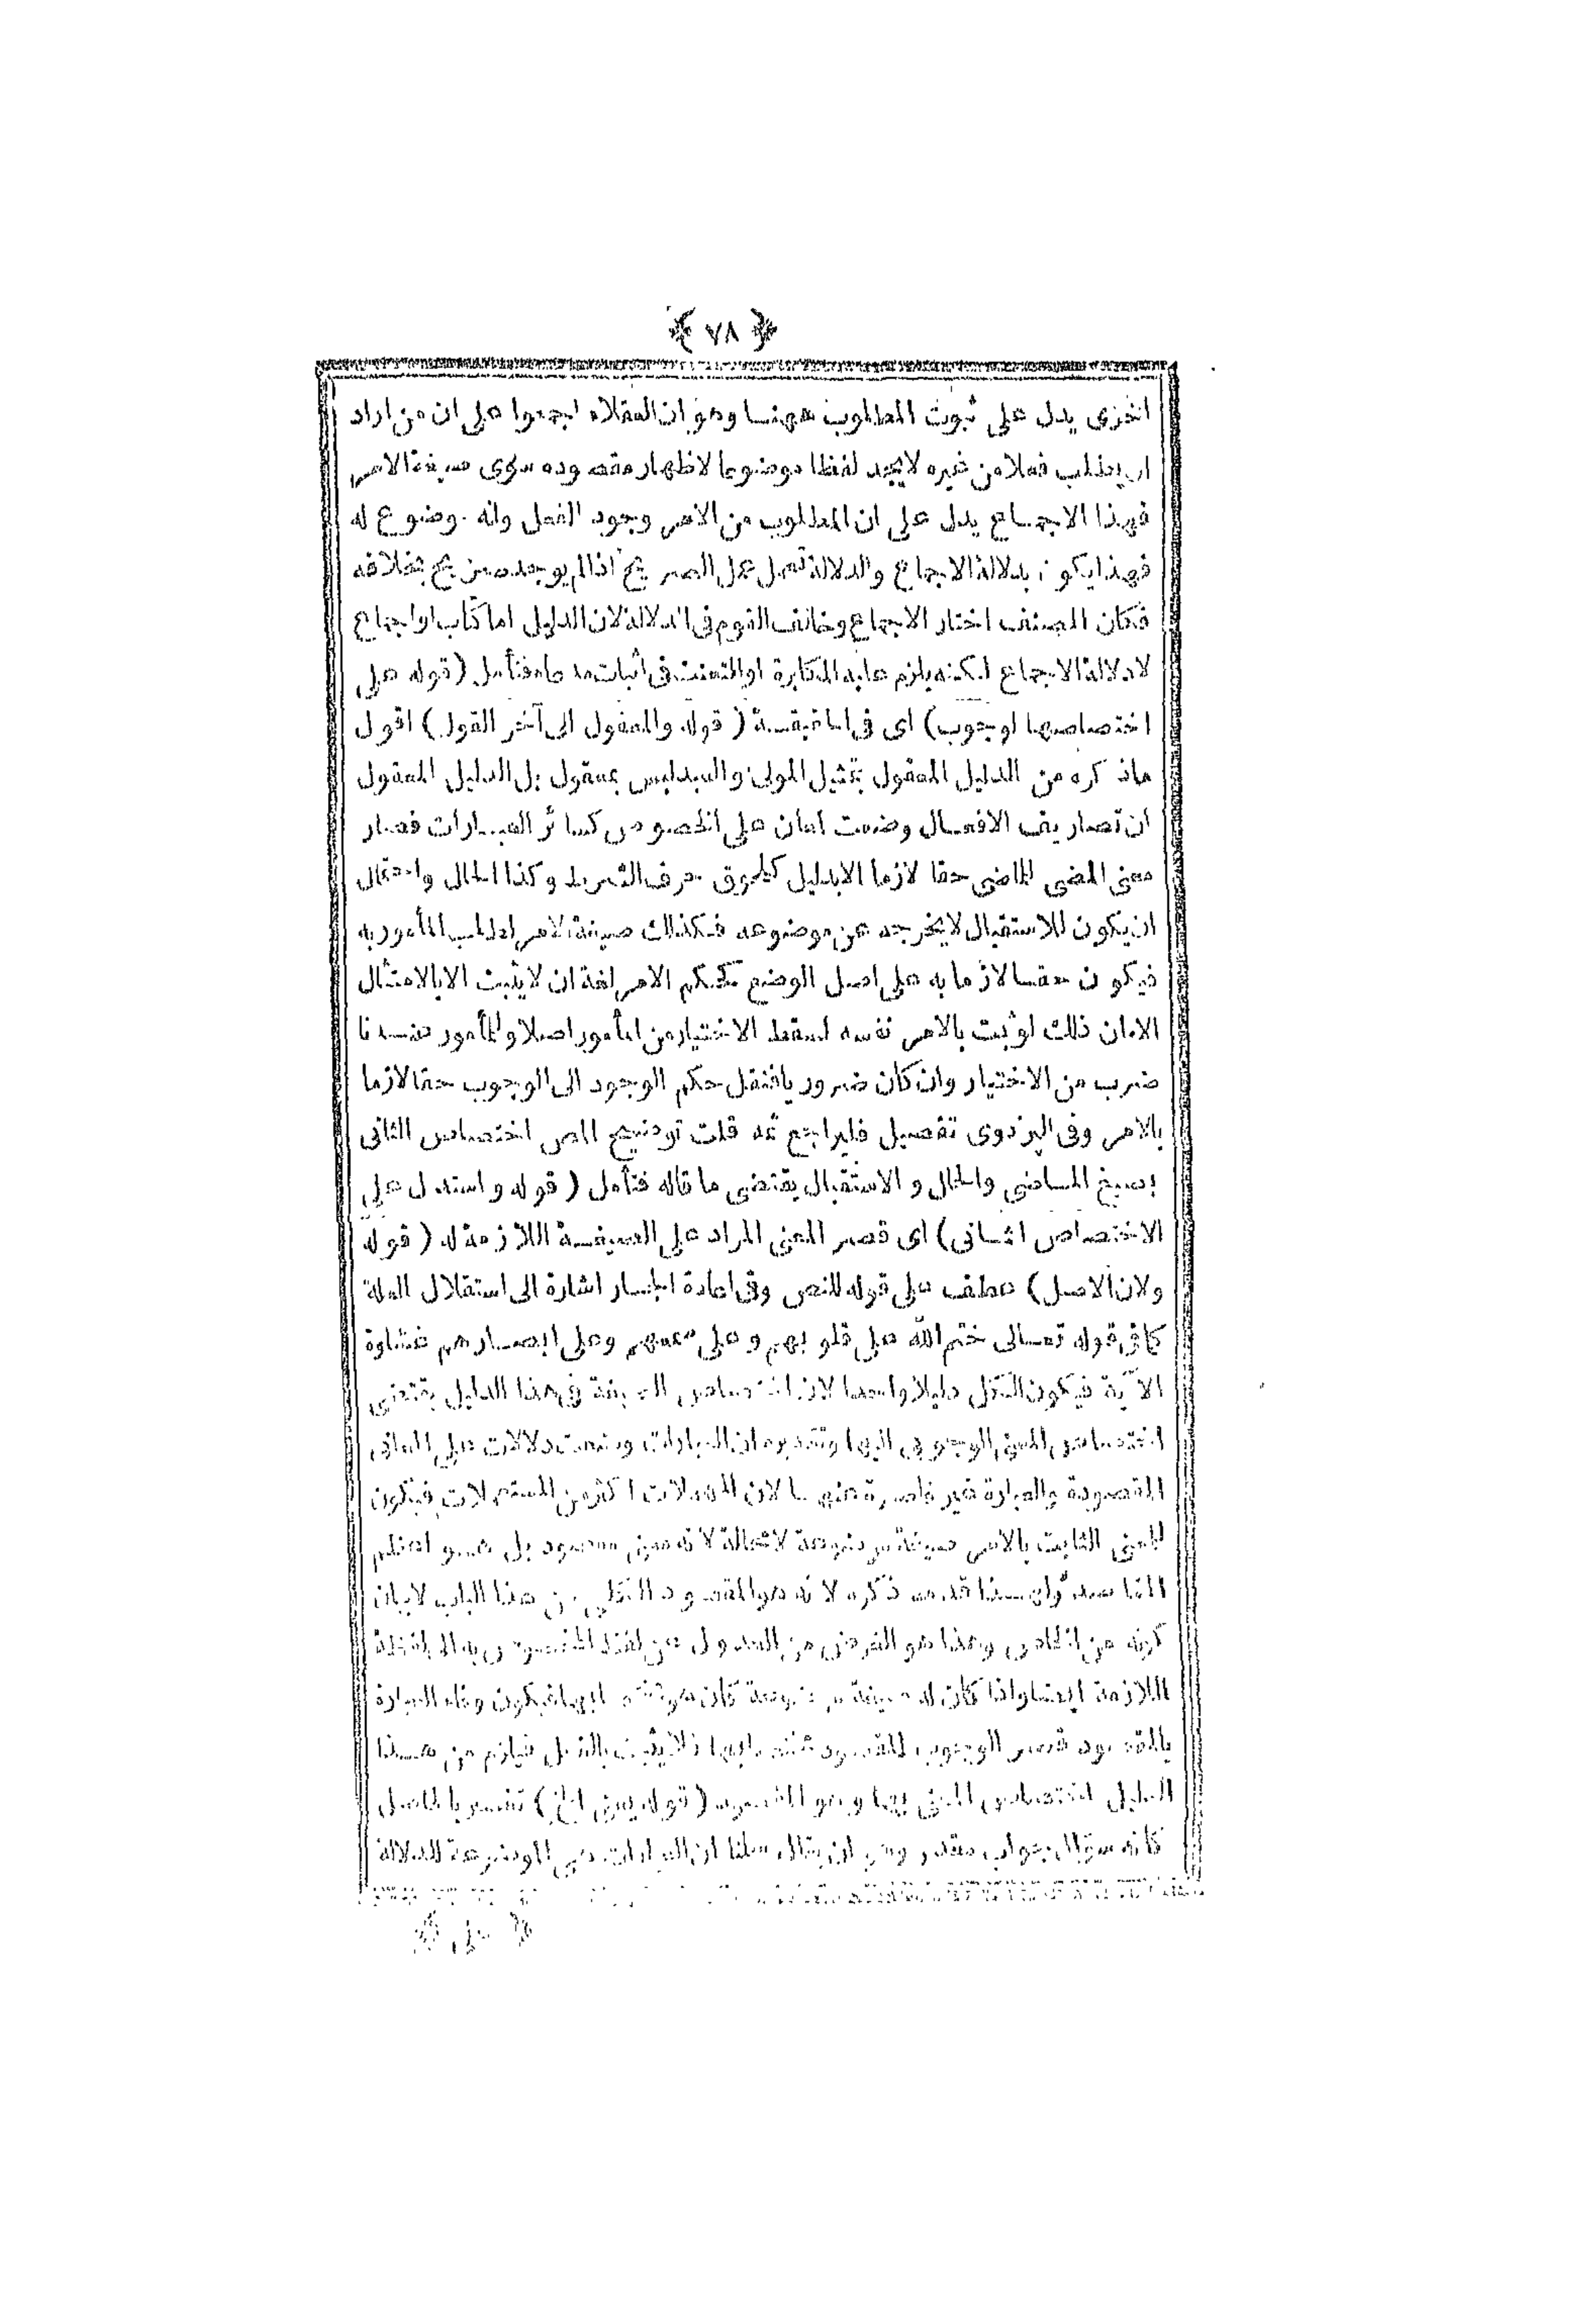 ﴿ ٧٨ ﴾
اخرى يدل على ثبوت المطلوب ههنا وهو ان العقلاء اجمعوا على ان من اراد
ان يطلب فعلا من غيره لا يجد لفظا موضوعا لاظهار مقصوده سوى صيغة الامر
فهذا الاجماع يدل على ان المطلوب من الامر وجود الفعل وانه موضوع له
فهذا يكون بدلالة الاجماع والدلالة تعمل عمل الصريح اذا لم يوجد صريح بخلافه
فكان المصنف اختار الاجماع وخالف القوم فى الدلالة لان الدليل اما كتاب او اجماع
لا دلالة الاجماع لكنه يلزم عليه المكابرة او التعنت فى اثبات مدعاه فتأمل (قوله على
اختصاصها لوجوب) اى فى الحقيقة (قوله والمعقول الى آخر القول) اقول
ما ذكره من الدليل المعقول بتمثيل المولى والعبد ليس بمعقول بل الدليل المعقول
ان تصاريف الافعال وضعت لمعان على الخصوص كسائر العبارات فصار
معنى المضى للماضى حقا لازما الا بدليل كلحوق حرف الشرط وكذا الحال واحتمال
ان يكون للاستقبال لا يخرجه عن موضوعه فكذلك صيغة الامر لطلب المأمور به
فيكون حقا لازما به على اصل الوضع فحكم الامر لغة ان لا يثبت الا بالامتثال
الا ان ذلك لو ثبت بالامر نفسه لسقط الاختيار من المأمور اصلا وللمأمور عندنا
ضرب من الاختيار وان كان ضروريا فنقل حكم الوجود الى الوجوب حقا لازما
بالامر وفى البزدوى تفصيل فليراجع ثمه قلت توضيح المص اختصاص الثانى
بصيغ الماضى والحال والاستقبال يقتضى ما قاله فتأمل (قوله واستدل على
الاختصاص الثانى) اى قصر المعنى المراد على الصيغة اللازمة له (قوله
ولان الاصل) عطف على قوله للنص وفى اعادة الجار اشارة الى استقلال العلة
كما فى قوله تعالى ختم الله على قلوبهم وعلى سمعهم وعلى ابصارهم غشاوة
الآية فيكون الكل دليلا واحدا لان اختصاص الصيغة فى هذا الدليل يقتضى
اختصاص المعنى الوجوبى اليها وتقديره ان العبارات وضعت دلالات على المعانى
المقصودة والعبارة غير قاصرة عنها لان المهملات اكثر من المستعملات فيكون
للمعنى الثابت بالامر صيغة موضوعة لا محالة لانه معنى مقصود بل هو اعظم
المقاصد ولهذا قدمه ذكره لانه هو المقصود من هذا الباب لا بيان
كونه من الخاص وهذا هو الغرض من العدول عن لفظ المخصوص به الى لفظة
اللازمة ايضا واذا كان له صيغة موضوعة كان مختصا بها فيكون وفاء العبارة
بالمقصود قصر الوجوب المقصود عليها فلا يثبت بالفعل فيلزم من هذا
الدليل اختصاص المعنى بها وهو المقصود (قوله يعنى الخ) تفسير بالحاصل
كأنه سؤال بجواب مقدر وهى ان يقال سلنا ان العبارات هى الموضوعة للدلالة
﴿ على ﴾